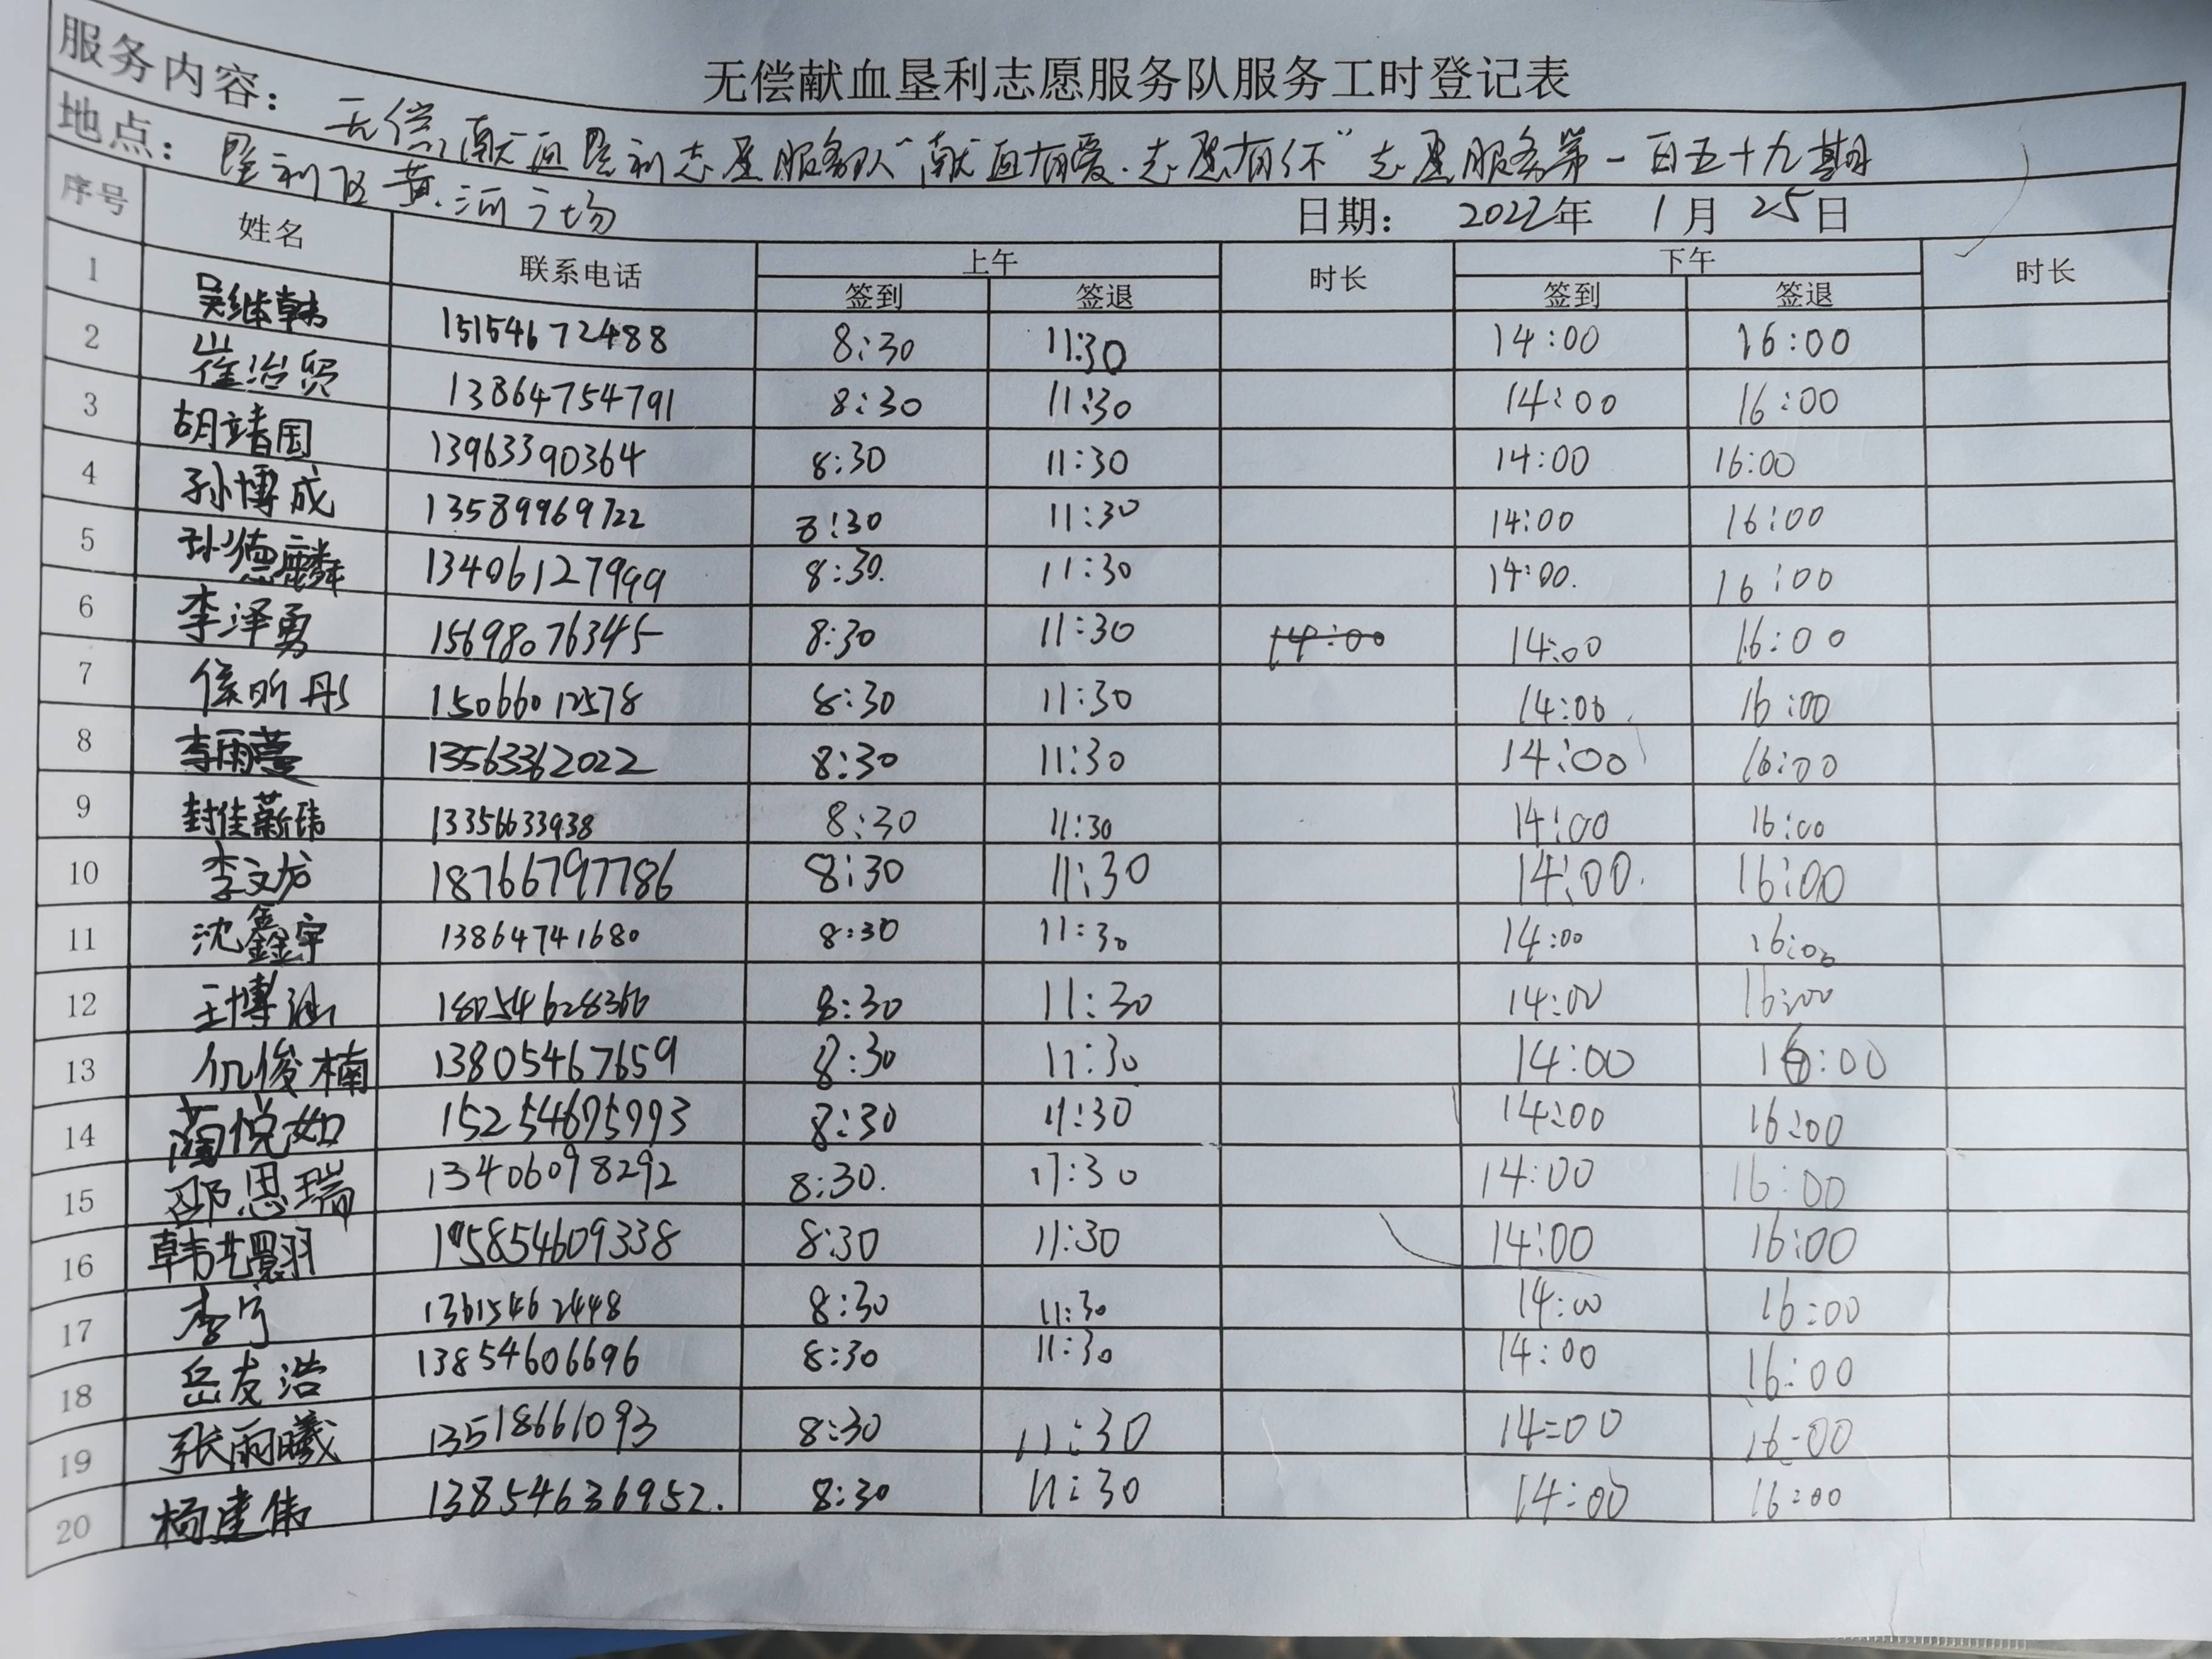 无偿献血垦利志愿服务队服务工时登记表
服务内容： 无偿献血垦利志愿服务队“献血有爱.志愿有你”志愿服务第一百五十九期
地点： 垦利区黄河广场 日期： 2022年 1月 25日
序号 姓名 联系电话 上午 时长 下午 时长
签到 签退 签到 签退
1 吴继韩 15154672488 8:30 11:30 14:00 16:00
2 崔治贤 13864754791 8:30 11:30 14:00 16:00
3 胡靖国 13963390364 8:30 11:30 14:00 16:00
4 孙博成 13589969722 8:30 11:30 14:00 16:00
5 孙德麟 13406127999 8:30. 11:30 14:00. 16:00
6 李泽勇 15698076345 8:30 11:30 14:00 14:00 16:00
7 侯昕彤 15066012578 8:30 11:30 14:00 16:00
8 李雨蔓 13563362022 8:30 11:30 14:00 16:00
9 封佳薪祎 13356633938 8:30 11:30 14:00 16:00
10 李文龙 18766797786 8:30 11:30 14:00. 16:00
11 沈鑫宇 13864741680 8:30 11:30 14:00 16:00
12 王博涵 18054628366 8:30 11:30 14:00 16:00
13 仉俊楠 13805467659 8:30 11:30 14:00 16:00
14 蔺悦如 15254695993 8:30 11:30 14:00 16:00
15 邵思瑞 13406098292 8:30. 11:30 14:00 16:00
16 韩 羽 15854609338 8:30 11:30 14:00 16:00
17 李宁 13615462448 8:30 11:30 14:00 16:00
18 岳友浩 13854606696 8:30 11:30 14:00 16:00
19 张雨曦 13518661093 8:30 11:30 14:00 16:00
20 杨建伟 13854636952. 8:30 11:30 14:00 16:00